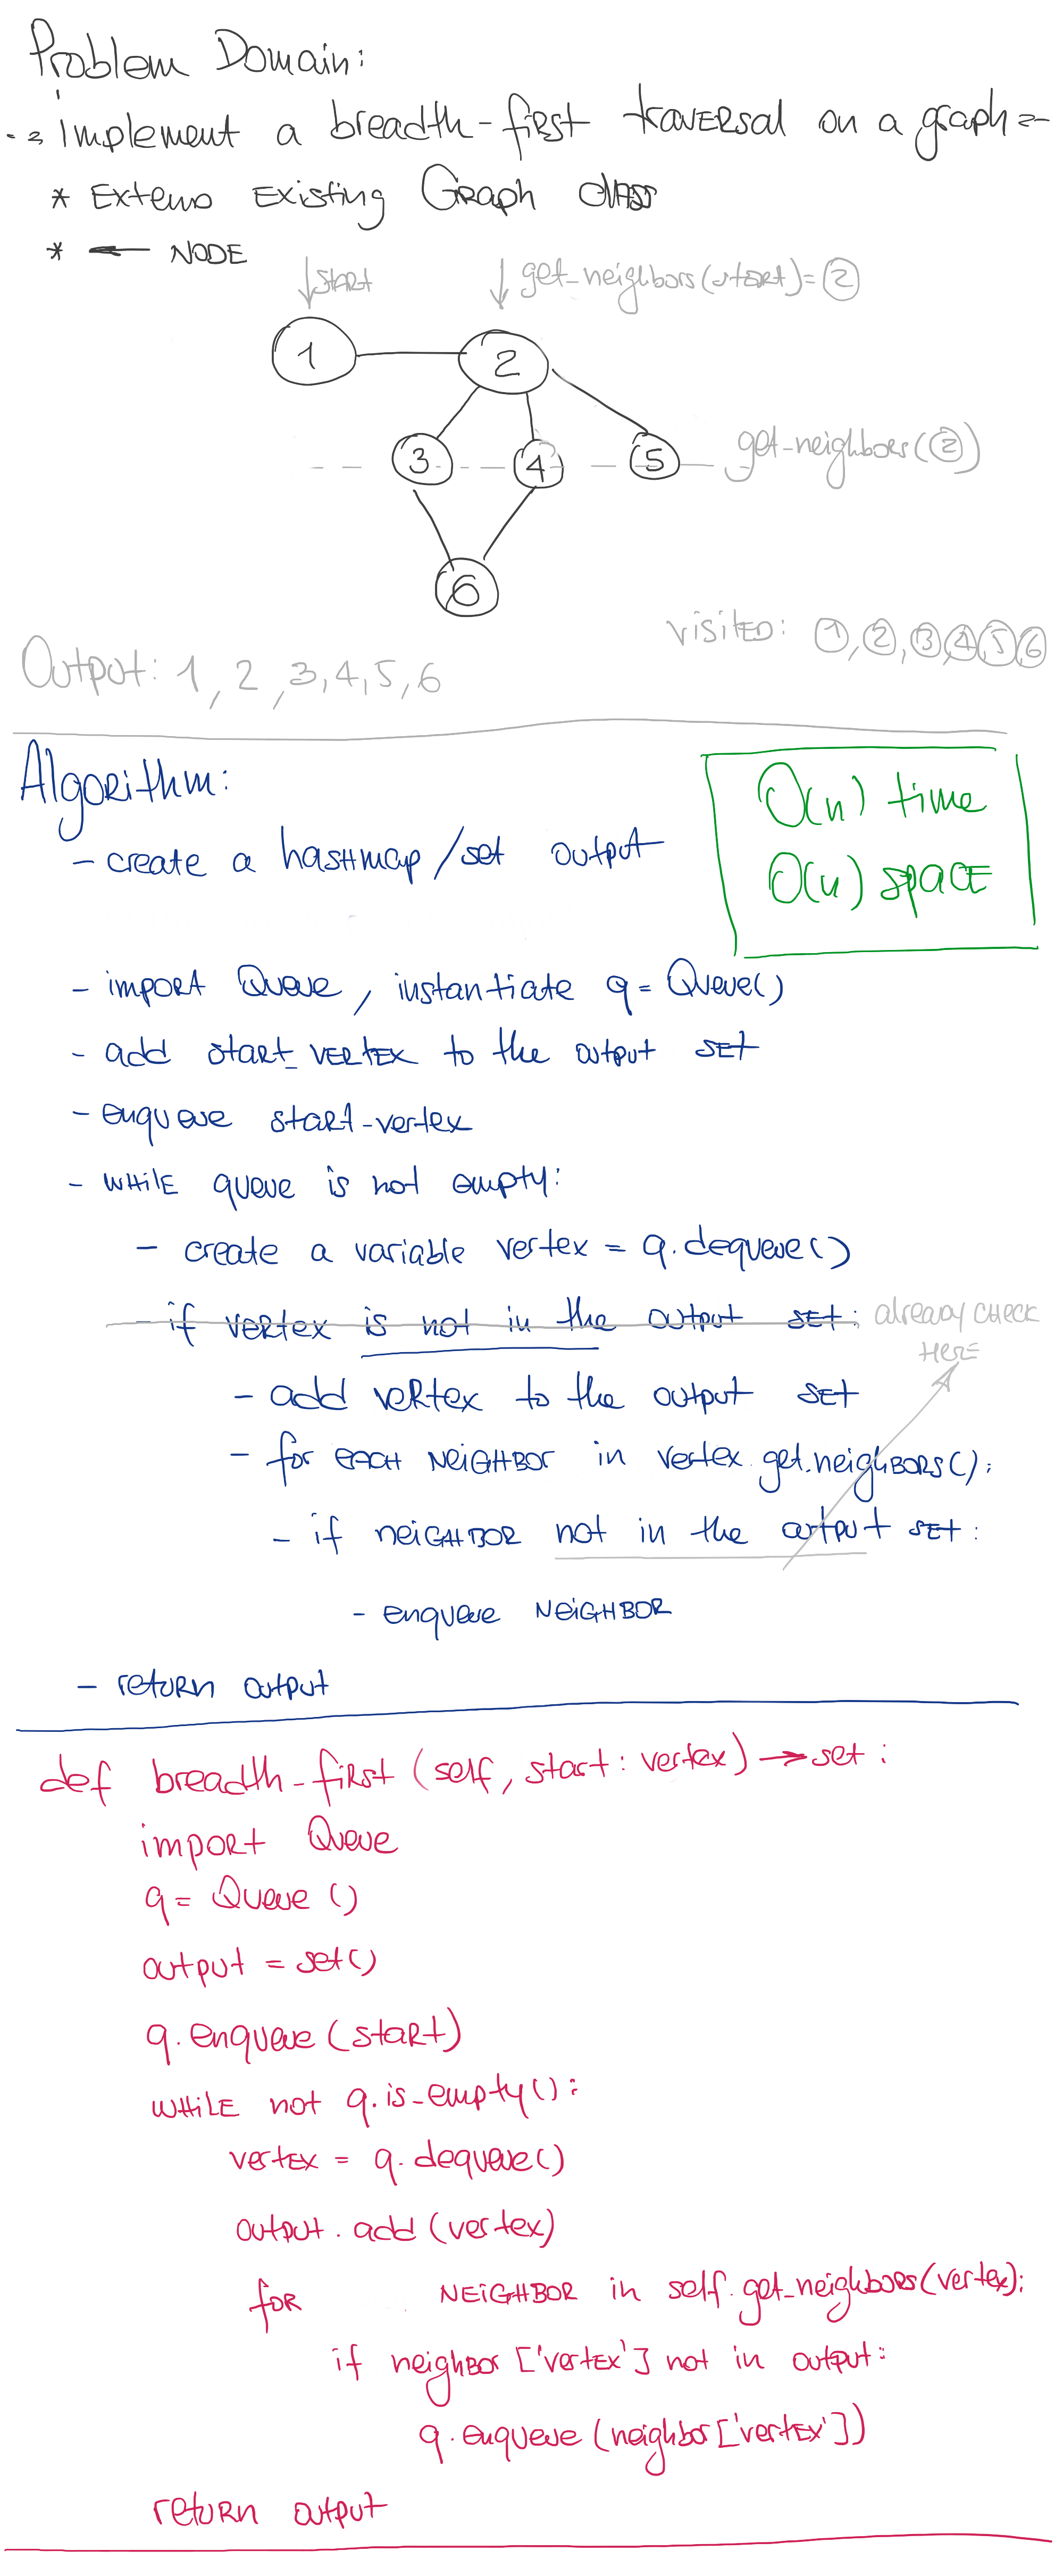 Problem Domain:
implement a breadth-first traversal on a graph
* Extend Existing Graph class
* NODE
start
get_neighbors(start)= 2
1
2
3
4
5
get_neighbors(2)
6
visited: 1, 2, 3, 4, 5, 6
Output: 1, 2, 3, 4, 5, 6
Algorithm:
O(n) time
- create a hashmap/set output
O(n) space
- import Queue, instantiate q = Queue()
- add start_vertex to the output set
- enqueue start-vertex
- while queue is not empty:
- create a variable vertex = q.dequeue()
- if vertex is not in the output set:
already check
here
- add vertex to the output set
- for each neighbor in vertex.get.neighbors():
- if neighbor not in the output set:
- enqueue neighbor
- return output
def breadth-first (self, start: vertex) → set:
import Queue
q = Queue ()
output = set()
q.enqueue(start)
while not q.is_empty():
vertex = q.dequeue()
output.add(vertex)
for neighbor in self.get_neighbors(vertex):
if neighbor['vertex'] not in output:
q.enqueue(neighbor['vertex'])
return output